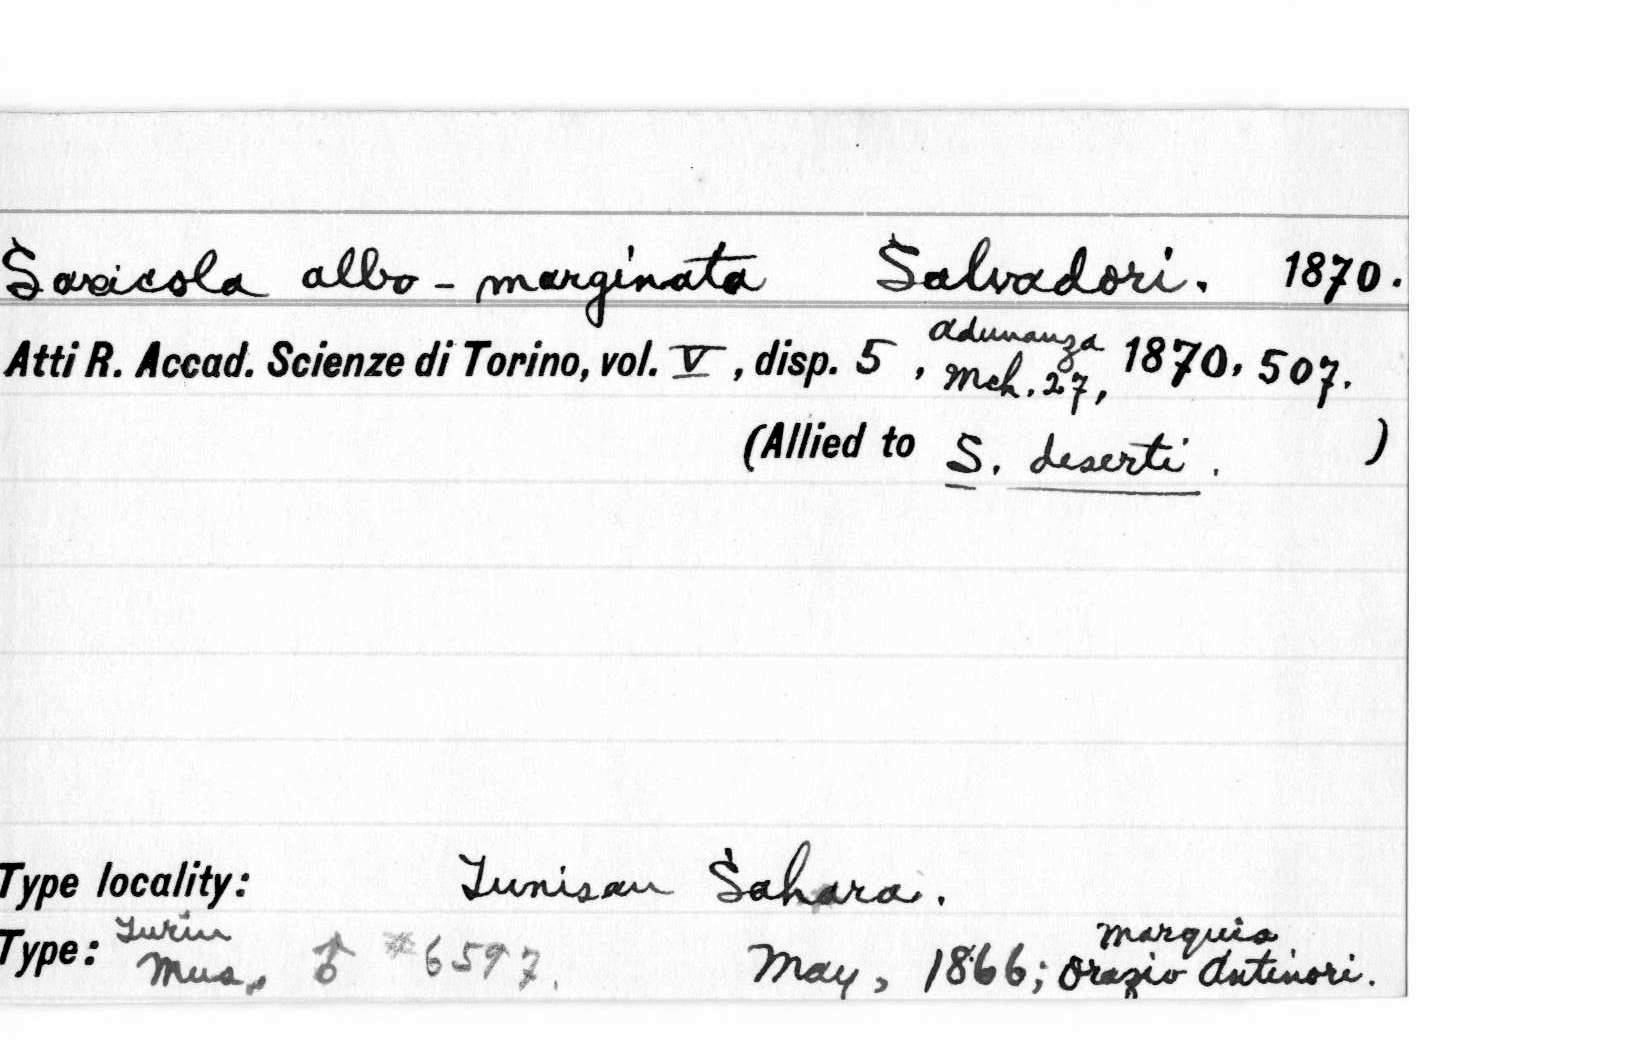 Saxicola albo-marginata Salvadori. 1870.
Atti R. Accad. Scienze di Torino, vol. V, disp. 5, adunanza Mch. 27, 1870, 507.
(Allied to S. deserti. )
Type locality: Tunisan Sahara.
Type: Turin Mus., ♂ #6597. May, 1866; Marquis Orazio Antinori.